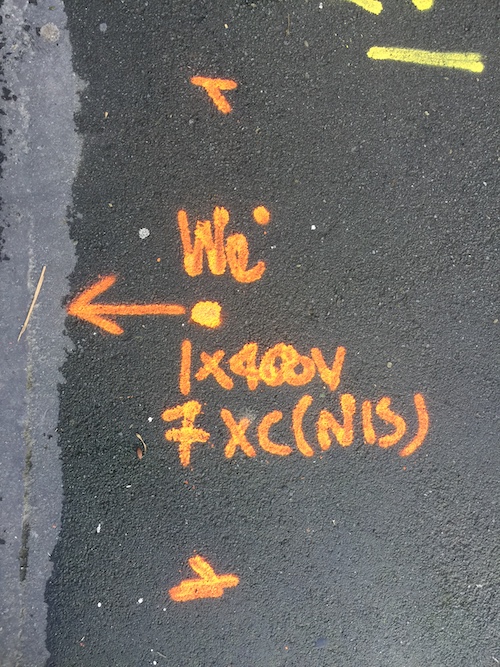 We
1x400V
7xC(N1S)